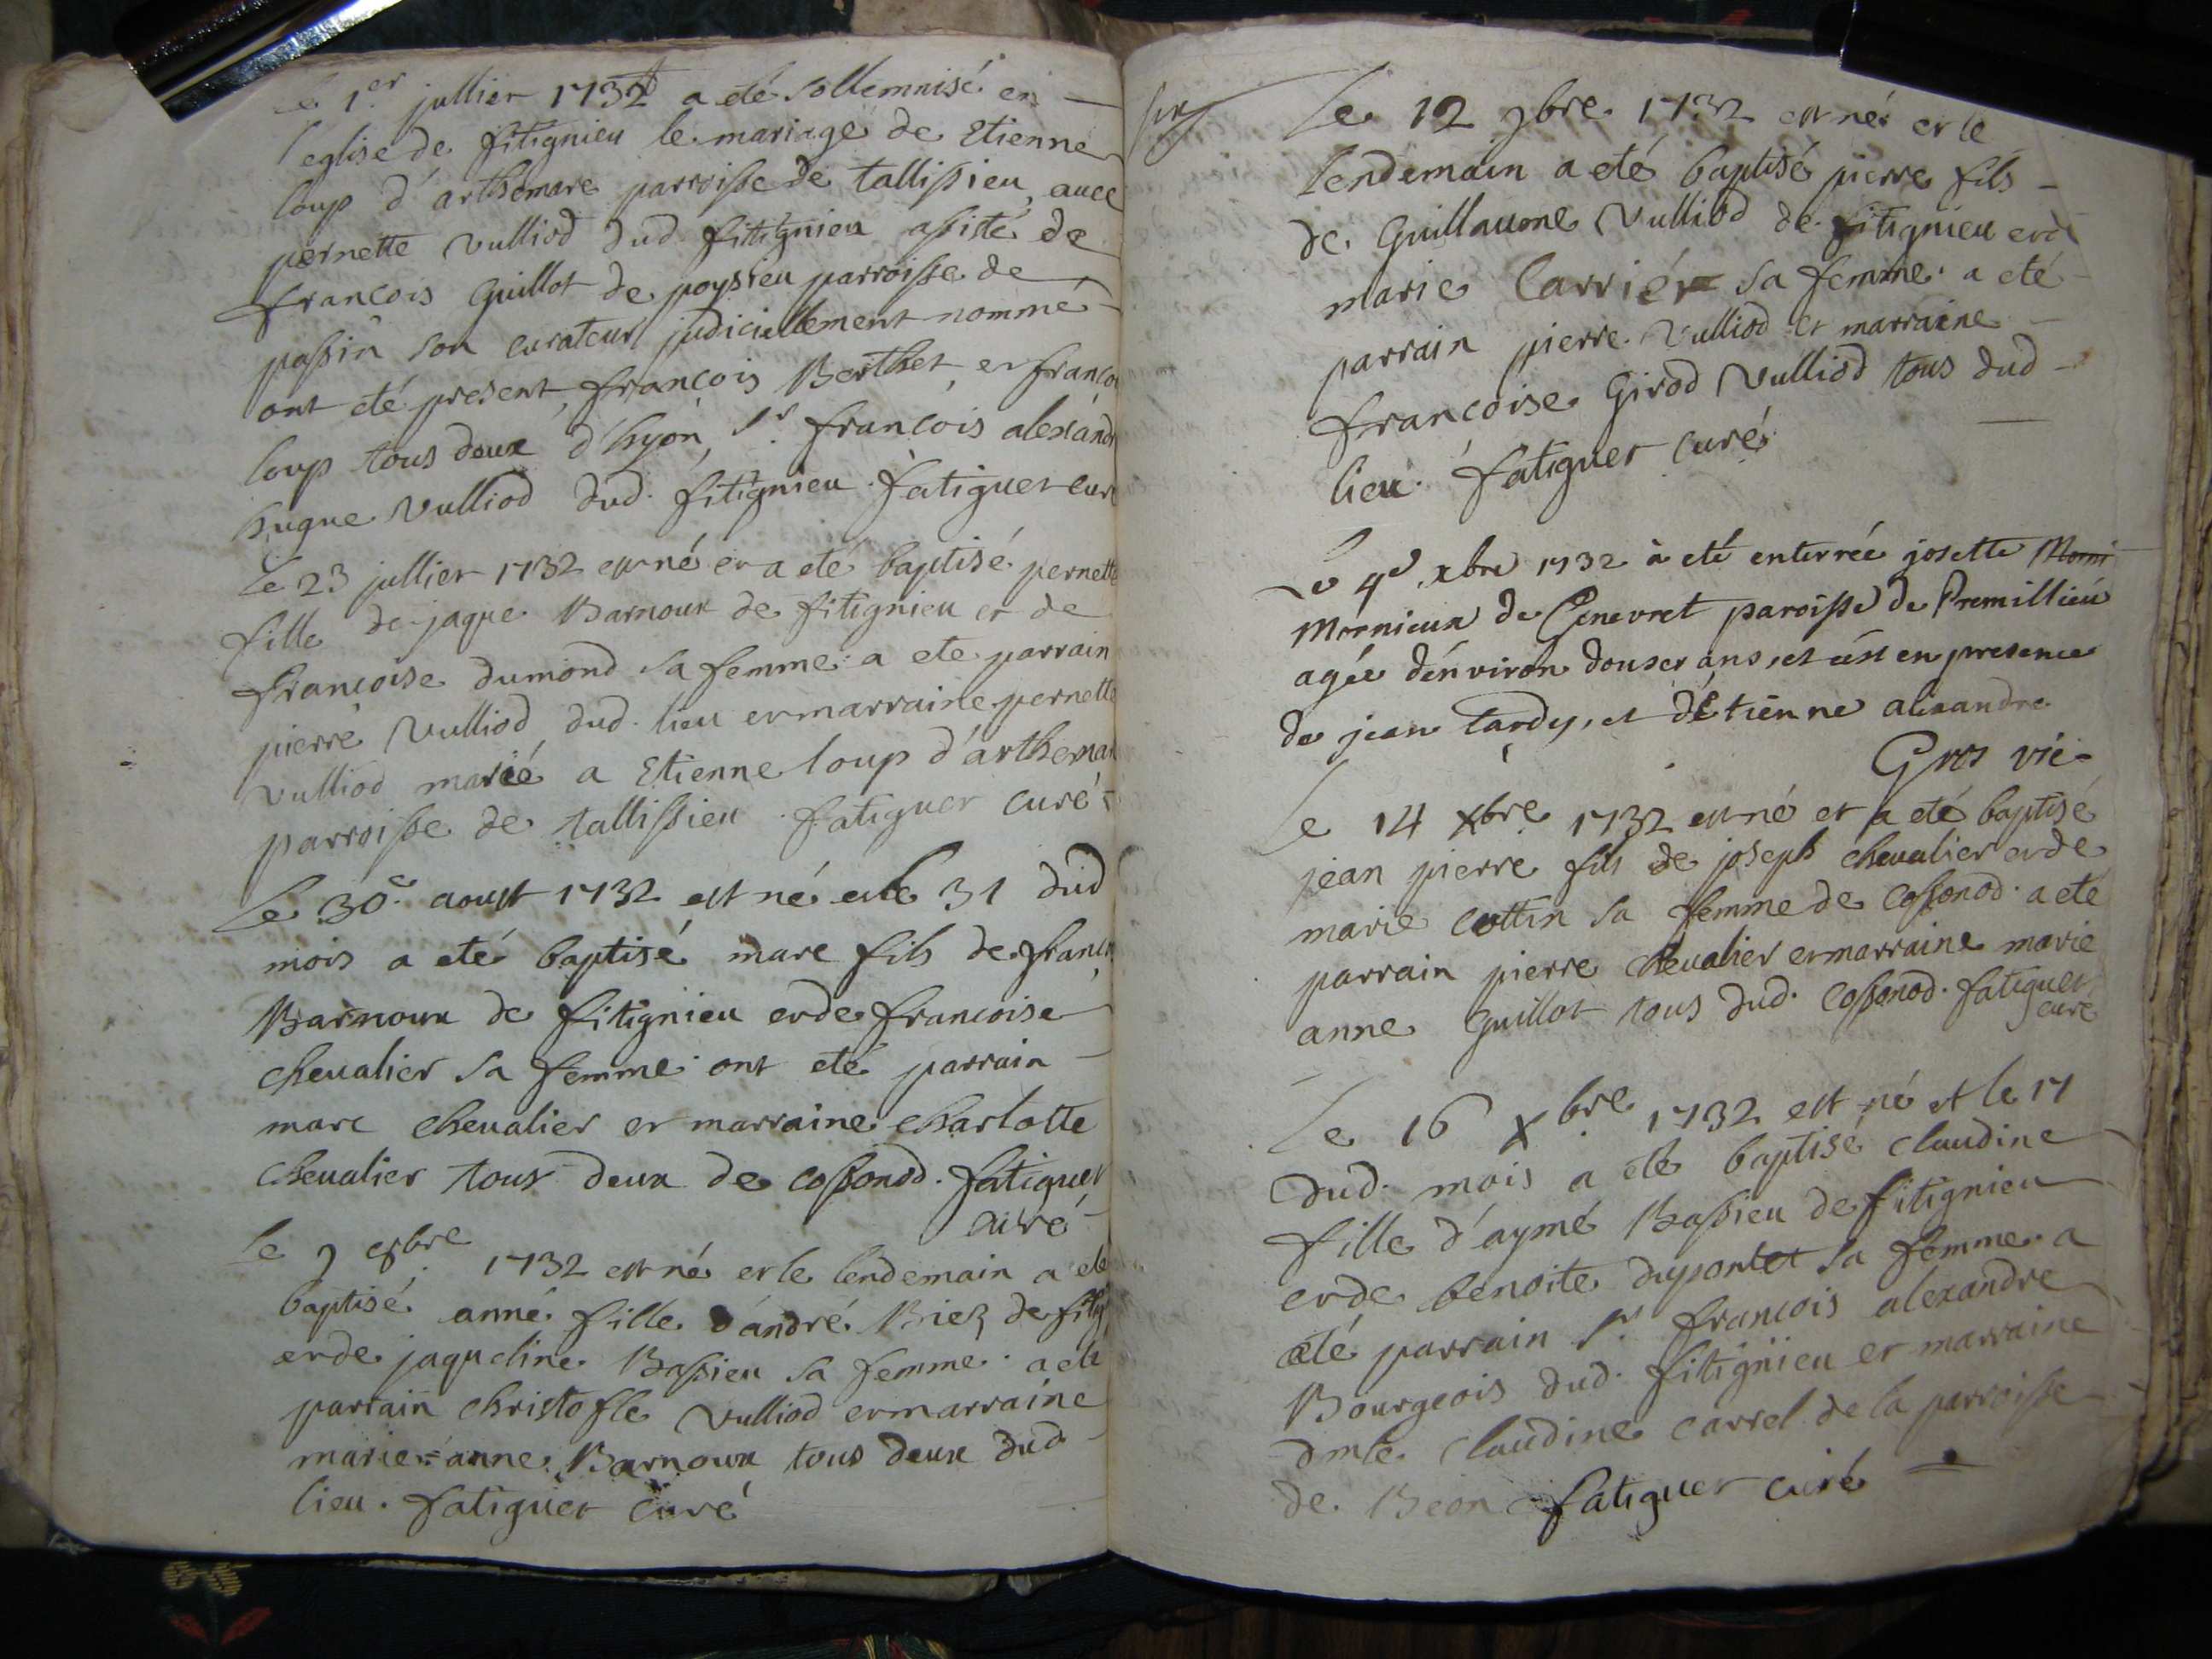 Le 1er jullier 1732 a eté sollemnisé en
l'eglise de fitignieu le mariage de Etienne
loup d'arthemare parroisse de tallissieu, avec
pernette vulliod dud. fitignieu assisté de
francois Guillot de poysieu parroisse de
passin son curateur judiciellement nommé
ont eté present, françois Berthet, et franço
loup tous deux d'hyön, Sr. francois alexandr
hugue vulliod dud. fitignieu. fatiguet cur
Le 23 jullier 1732 est né et a eté baptisé pernette
fille de jaque Barnoux de fitignieu et de
francoise dumond sa femme. a ete parrain
pierre vulliod dud. lieu et marraine pernette
vulliod marié a Etienne loup d'arthemar
parroisse de tallissieu. fatiguet curé
Le 30e aoust 1732 est né et le 31 dud
mois a eté baptisé marc fils de franco
Barnoux de fitignieu et de francoise
chevalier sa femme. ont eté parrain
marc chevalier et marraine charlotte
chevalier tous deux de cossonod. fatiguet
curé
le 9 8bre 1732 est né et le lendemain a eté
baptisé anne fille d'andré Briez de fitig
et de jaqueline Bassieu sa femme. a eté
parrain christofle vulliod et marraine
marie=anne Barnoux tous deux dud
lieu. fatiguet curé
Le 12 9bre 1732 est né et le
lendemain a eté baptisé pierre fils
de Guillaume Vulliod de fitignieu et d
marie Carrier sa femme. a eté
parrain pierre Vulliod et marraine
francoise Girod Vulliod tous dud
lieu. fatiguet curé
Le 4e xbre 1732 à eté enterrée josette Morni
Mornieux de Genevret paroisse de Premillieu
agée d'énviron douser ans, et cést en presence
de jean tardy, et d'étienne alixandre
Gros vic.
Le 14 xbre 1732 est né et a eté baptisé
jean pierre fils de joseph chevalier et de
marie cottin sa femme de cossonod. a eté
parrain pierre chevalier et marraine marie
anne Guillot tous dud. cossonod. fatiguet
curé
Le 16 xbre 1732 est né et le 17
dud. mois a eté baptisé claudine
fille d'aymé Bassieu de fitignieu
et de benoite dupontet sa femme. a
eté parrain Sr. francois alexandre
Bourgeois dud. fitignieu et marraine
dmle. claudine carrel de la parroisse
de Béon. fatiguet curé